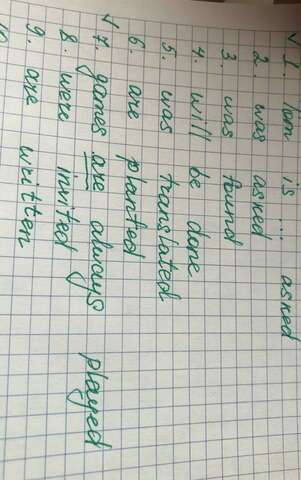 √ 1. Tom is ... asked
2. was asked
3. was found
4. will be done
5. was translated
6. are planted
√ 7. games are always played
8. were invited
9. are written